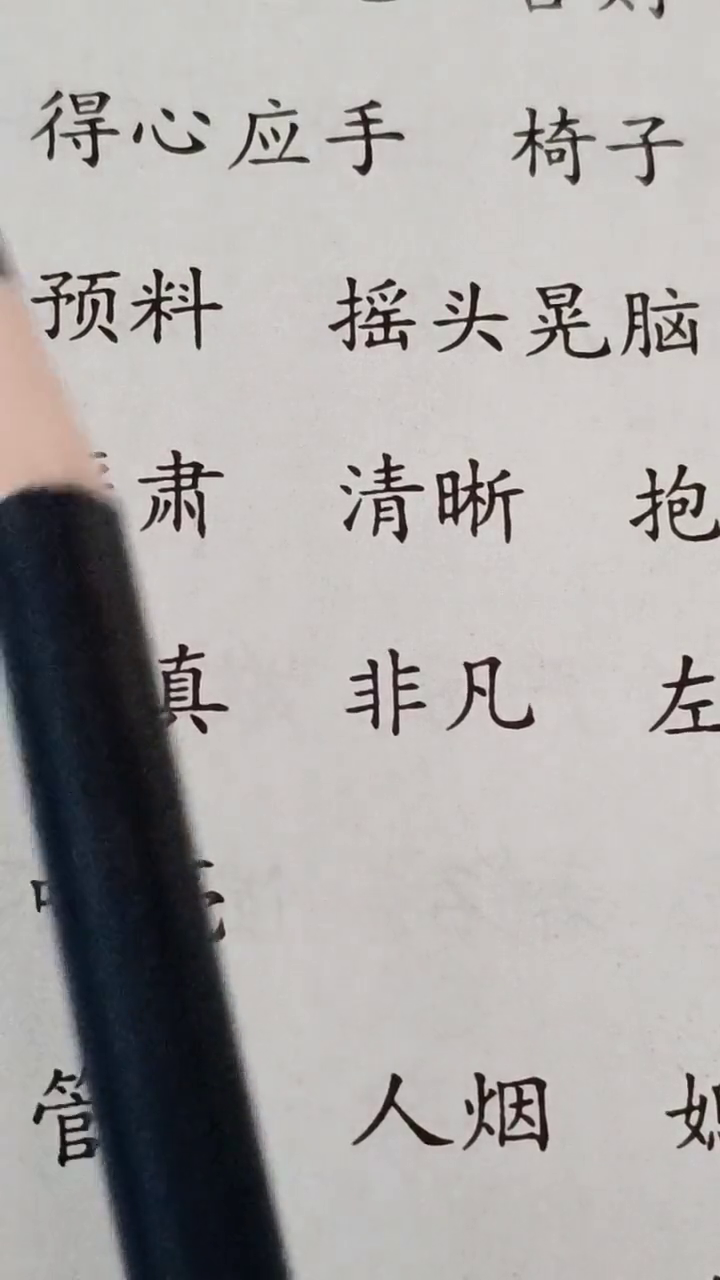 得心应手 椅子
预料 摇头晃脑
肃 清晰 抱
真 非凡 左
管 人烟